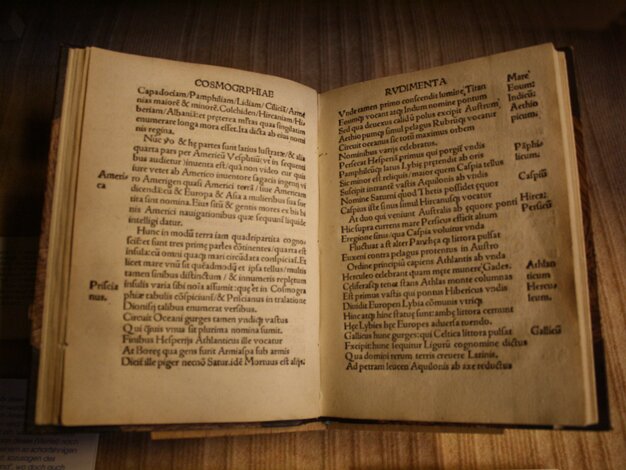 COSMOGRPHIAE
Capadociam/Pamphiliam/Lidiam/Ciliciā/Arme
nias maiorē & minorē. Colchiden/Hircaniam/Hi
beriam/Albaniā: et preterea mltas quas singilatim
enumerare longa mora esset. Ita dicta ab eius nomi
nis regina.
Nūc ỹo & hę partes sunt latius lustratæ/& alia
quarta pars per Americū Vesputiū (vt in sequenti
bus audietur) inuenta est / quā non video cur quis
iure vetet ab Americo inuentore sagacis ingenij vi
ro Amerigen quasi Americi terrā / siue Americam
dicendā: cū & Europa & Asia a mulieribus sua sor
tita sint nomina. Eius sitū & gentis mores ex bis bi
nis Americi nauigationibus quæ sequunt̃ liquide
intelligi datur.
Ameri
ca
Hunc in modū terra iam quadripartita cogno
scit̃: et sunt tres primę partes cōtinentes / quarta est
insula: cū omni quaq̃ mari circūdata conspiciat̃. Et
licet mare vnū sit quēadmodū et ipsa tellus / multis
tamen sinibus distinctum / & innumeris repletum
insulis varia sibi noīa assumit: quę et in Cosmogra
phiæ tabulis cōspiciunt̃ / & Priscianus in tralatione
Dionisij talibus enumerat versibus.
Priscia
nus.
Circuit Oceani gurges tamen vndiq̃ vastus
Qui q̃uis vnus sit plurima nomina sumit.
Finibus Hesperijs Athlanticus ille vocatur
At Boreę qua gens furit Armiaspa sub armis
Dicit̃ ille piger necnō Satur. idē Mortuus est alijs.
RVDIMENTA
Vnde tamen primo conscendit lumine Titan
Eoumq̃ vocant atq̃ Indum nomine pontum
Sed qua deuexus calidū polus excipit Austrum
Aethiopumq̃ simul pelagus Rubrūq̃ vocatur
Circuit oceanus sic totū maximus orbem
Nominibus varijs celebratus.
Mare
Eoum:
Indicū:
Aethio
picum:
Persecat Hesperiā primus qui porgit̃ vndis
Pamphileūq̃ latus Lybię prętendit ab oris
Sic minor est reliquis / maior quem Caspia tellus
Suscipit intrantē vastis Aquilonis ab vndis
Nomine Saturni quod Thetis possidet ęquor
Caspius iste sinus simul Hircanusq̃ vocatur
At duo qui veniunt Australis ab ęquore ponti
Hic supra currens mare Persicus efficit altum
Eregione situs / qua Caspia voluitur vnda
Pāphi-
licum.
Caspiū
Hircaī.
Persicū
Fluctuat ast alter Panchęa q̃ littora pulsat
Euxeni contra pelagus protentus in Austro
Ordine principiū capiens Athlantis ab vnda
Hercules celebrant quam męte munere Gades.
Cęliferasq̃ tenet stans Athlas monte columnas
Est primus vastis qui pontus Hibericus vndis
Diuidit Europen Lybia cōmunis vtriq̃
Hincatq̃ hinc statuę sunt: ambę littora cernunt
Hęc Lybies hęc Europes aduersa tuendo.
Athlan
ticum
Hercu
leum.
Gallicus hunc gurges: qui Celtica littora pulsat
Excipit: hunc sequitur Ligurū cognomine dictus
Qua domini rerum terris creuere Latinis.
Ad petram leucen Aquilonis ab axe reductus
Gallicū